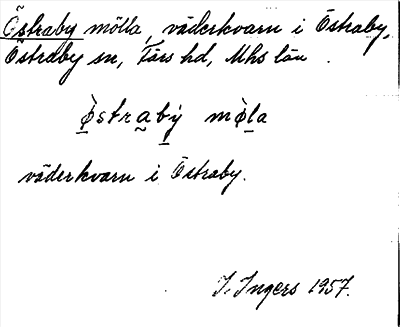 Östraby mölla, väderkvarn i Östraby,
Östraby sn, Färs hd, Mhs län.
ø̀strabý mø̀la
väderkvarn i Östraby.
I. Ingers 1957.